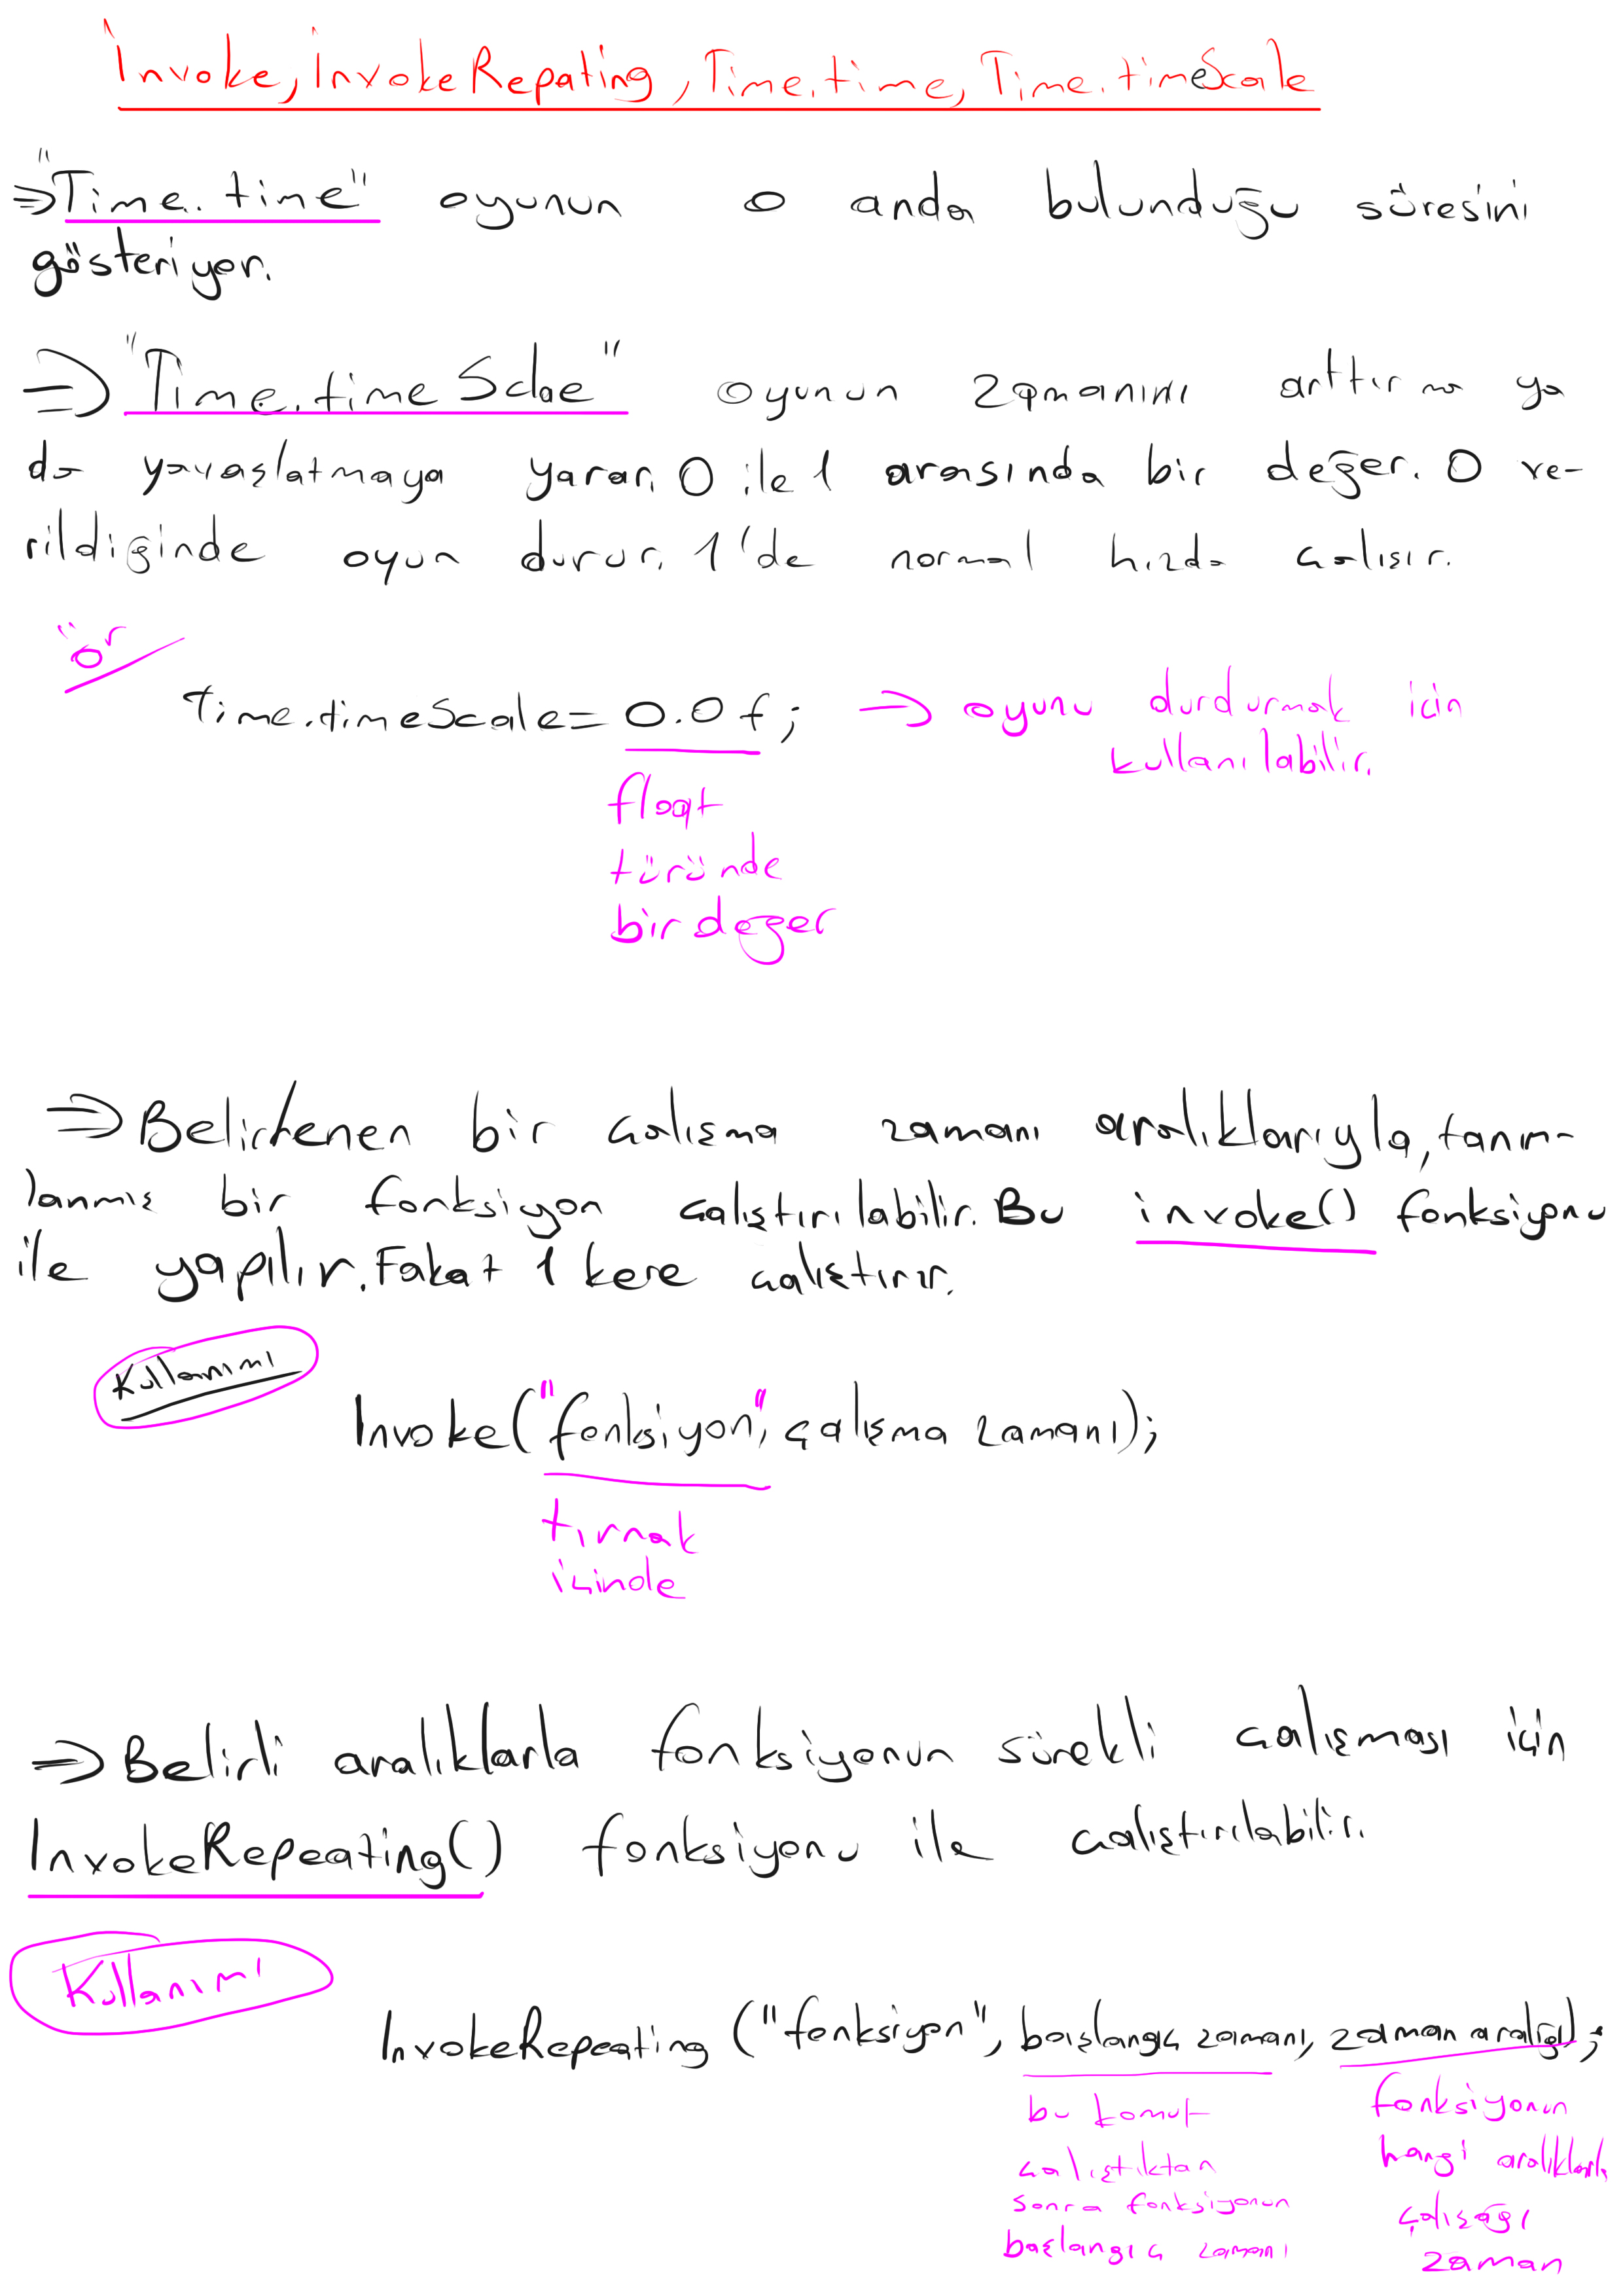 Invoke, InvokeRepating, Time.time, Time.timeScale
⇒"Time.time" oyunun o anda bulunduğu süresini
gösteriyor.
⇒ "Time.time Sclae" oyunun zamanını arttırma ya
da yavaşlatmaya yarar. 0 ile 1 arasında bir değer. 0 ve-
rildiğinde oyun durur. 1'de normal hızda çalışır.
ör
Time.timeScale= 0.0f; → oyunu durdurmak için
kullanılabilir.
float
türünde
bir değer
⇒ Belirlenen bir çalışma zamanı aralıklarıyla, tanım-
lanmış bir fonksiyon çalıştırılabilir. Bu invoke() fonksiyonu
ile yapılır. Fakat 1 kere çalıştırır.
Kullanımı
Invoke("fonksiyon", çalışma zamanı);
tırnak
içinde
⇒ Belirli aralıklarla fonksiyonun sürekli çalışması için
InvokeRepeating() fonksiyonu ile çalıştırılabilir.
Kullanımı
InvokeRepeating ("fonksiyon", başlangıç zamanı, zaman aralığı);
bu komut
çalıştıktan
sonra fonksiyonun
başlangıç zamanı
fonksiyonun
hangi aralıklarla
çalışağı
zaman